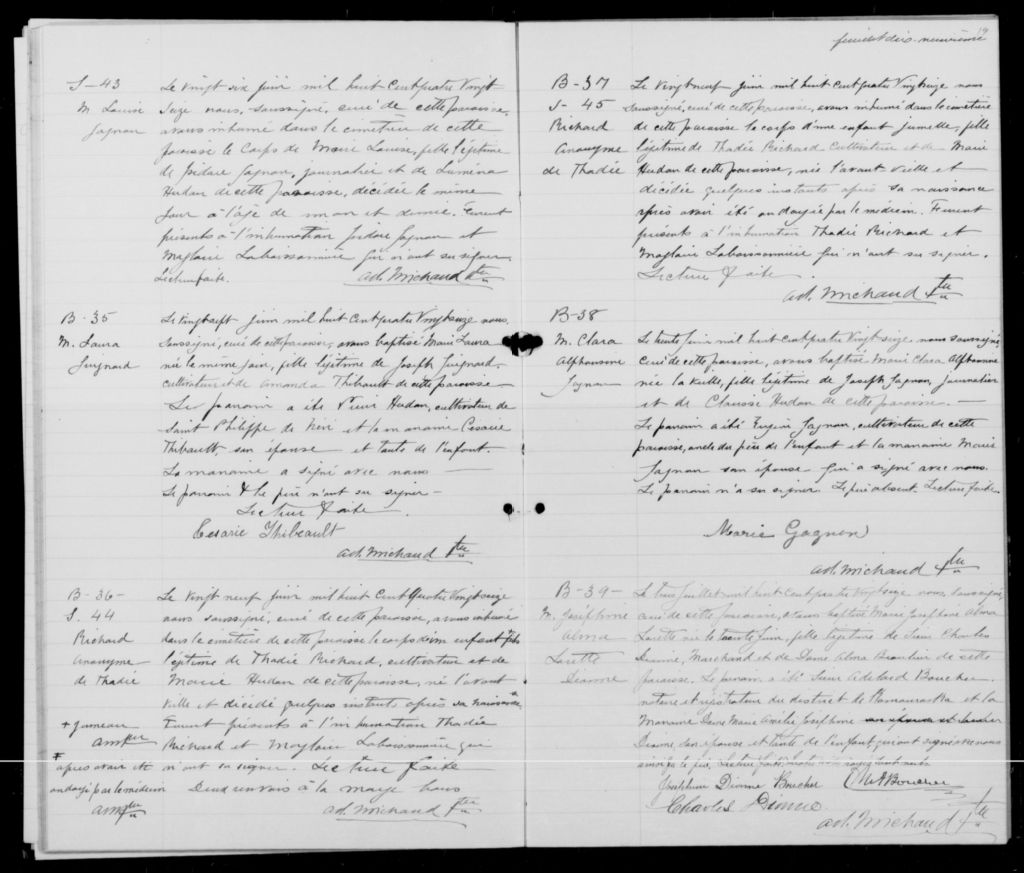 S-43
M. Louise
Gagnon
Le vingt six juin mil huit cent quatre vingt
seize nous, soussigné, curé de cette paroisse,
avons inhumé dans le cimetière de cette
paroisse le corps de Marie Louise, fille légitime
de Isidore Gagnon, journalier et de Luména
Hudon de cette paroisse, décédée le même
jour à l'âge de un an et demie. Furent
présents à l'inhumation Isidore Gagnon et
Magloire Labaissonnière qui n'ont su signer.
Lecture faite.
Ad. Michaud Ptre
B-35
M. Laura
Guignard
Le vingt sept juin mil huit cent quatre vingt seize nous
soussigné, curé de cette paroisse, avons baptisé Marie Laura
née le même jour, fille légitime de Joseph Guignard,
cultivateur et de Amanda Thibault de cette paroisse
Le parrain a été Hudon, cultivateur de
Saint Philippe de Néri et la marraine Césarie
Thibault, son épouse et tante de l'enfant.
La marraine a signé avec nous
Le parrain & le père n'ont su signer
Lecture faite.
Cesarie Thibeault
Ad. Michaud Ptre
B-36-
S. 44
Richard
Anonyme
de Thadée
Le vingt neuf juin mil huit cent quatre vingt seize
nous soussigné, curé de cette paroisse, avons inhumé
dans le cimetière de cette paroisse le corps d'un enfant + fils
légitime de Thadée Richard, cultivateur et de
Marie Hudon de cette paroisse, né l'avant
veille et décédé quelques instants après sa naissance *
Furent présents à l'inhumation Thadée
Richard et Magloire Labaissonnière qui
n'ont su signer. Lecture faite
Deux renvois à la marge bons
Ad. Michaud Ptre
+ jumeau
AM ptre
* après avoir été
ondoyé par le médecin
AM ptre
19
feuillet dix-neuvième
B-37
S-45
Richard
Anonyme
de Thadée
Le vingt neuf juin mil huit cent quatre vingt seize nous
soussigné, curé de cette paroisse, avons inhumé dans le cimetière
de cette paroisse le corps d'une enfant jumelle, fille
légitime de Thadée Richard Cultivateur et de Marie
Hudon de cette paroisse, née l'avant veille et
décédée quelques instants après sa naissance
après avoir été ondoyée par le médecin. Furent
présents à l'inhumation Thadée Richard et
Magloire Labaissonnière qui n'ont su signer.
Lecture faite.
Ad. Michaud Ptre
B-38
M. Clara
Alphonsine
Gagnon
Le trente juin mil huit cent quatre vingt seize nous soussigné,
curé de cette paroisse, avons baptisé Marie Clara Alphonsine
née la veille, fille légitime de Joseph Gagnon, journalier
et de Clarisse Hudon de cette paroisse. —
Le parrain a été Eugène Gagnon, cultivateur de cette
paroisse, oncle du père de l'enfant et la marraine Marie
Gagnon son épouse qui a signé avec nous.
Le parrain n'a su signer. Le père absent. Lecture faite.
Marie Gagnon
Ad. Michaud Ptre
B-39-
M. Joséphine
Alma
Lorette
Dionne
Le juillet mil huit cent quatre vingt seize nous, soussigné,
curé de cette paroisse, avons baptisé Marie Joséphine Alma
Lorette née le trente juin, fille légitime de Sieur Charles
Dionne, Marchand et de Dame Alma Beaulieu de cette
paroisse. Le parrain a été Sieur Adelard Boucher
notaire et registrateur du district de Kamouraska et la
Marraine Dame Marie Amélie Joséphine
Dionne, son épouse et tante de l'enfant, qui ont signé avec nous
ainsi que le père. Lecture faite.
Josephine Dionne Boucher
Boucher
Charles Dionne
Ad. Michaud Ptre